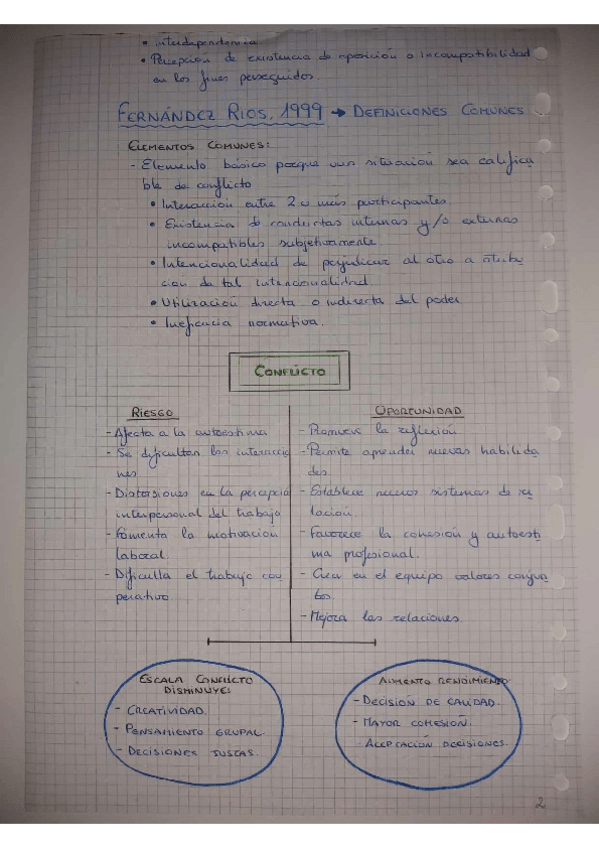 • interdependencia
• Percepción de existencia de oposición o incompatibilidad
en los fines perseguidos.
FERNÁNDEZ RIOS, 1999 → DEFINICIONES COMUNES
ELEMENTOS COMUNES:
- Elemento básico porque una situación sea califica
ble de conflicto
• Interacción entre 2 o más participantes
• Existencia de conductas internas y/o externas
incompatibles subjetivamente
• Intencionalidad de perjudicar al otro o atribu
ción de tal intencionalidad.
• Utilización directa o indirecta del poder
• Ineficacia normativa.
CONFLICTO
RIESGO
- Afecta a la autoestima
- Se dificultan las interaccio
nes
- Distorsiones en la percepció
interpersonal del trabajo
- Fomenta la motivación
laboral.
- Dificulta el trabajo coo
perativo
OPORTUNIDAD
- Promueve la reflexión
- Permite aprender nuevas habilida
des.
- Establece nuevos sistemas de re
lación.
- Favorece la cohesión y autoesti
ma profesional.
- Crear en el equipo valores conjun
tos.
- Mejora las relaciones.
ESCALA CONFLICTO
DISMINUYE:
- CREATIVIDAD.
- PENSAMIENTO GRUPAL.
- DECISIONES JUSTAS.
AUMENTO RENDIMIENTO
- DECISIÓN DE CALIDAD.
- MAYOR COHESIÓN.
- ACEPTACIÓN DECISIONES.
2